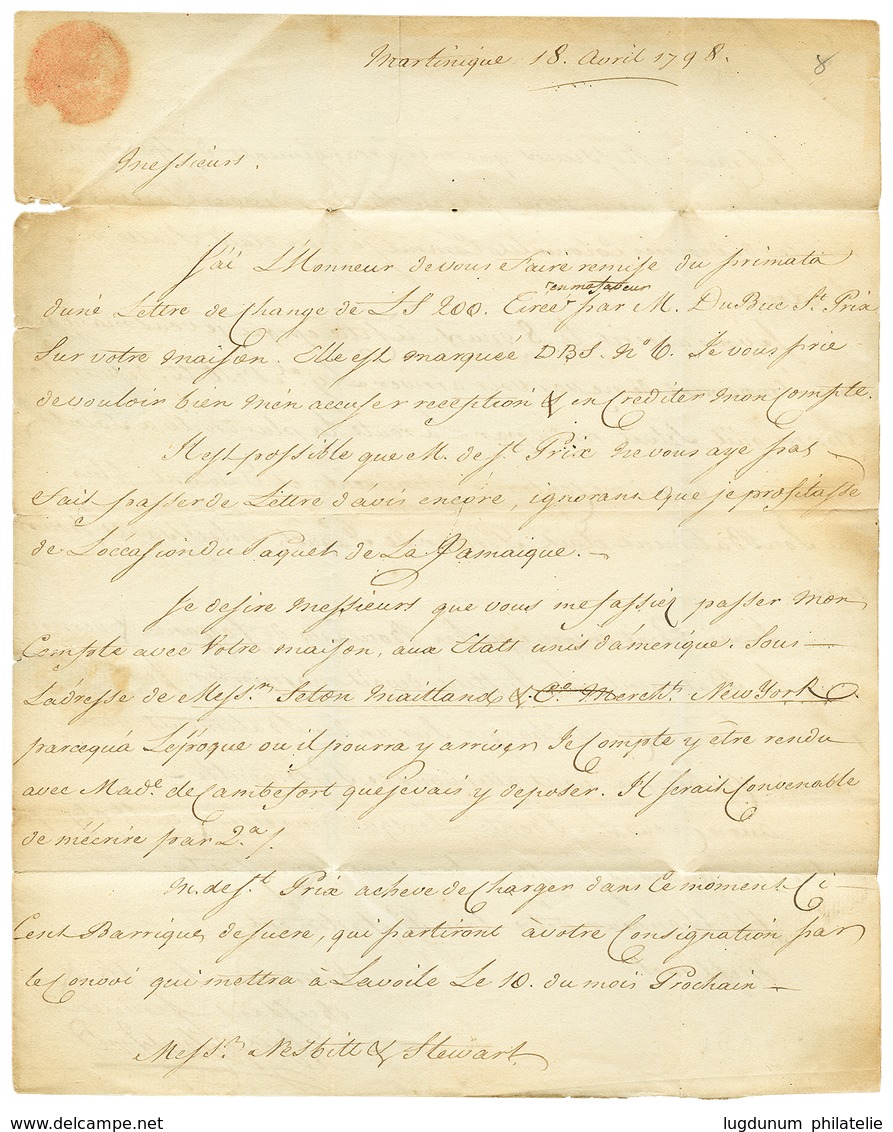 Martinique 18. Avril 1798.
8
Messieurs.
J'ai L'Honneur de vous Faire remise du primata
en ma faveur
d'une Lettre de Change de LS 200. Tirée par M. DuBuc St. Prix
Sur votre maison. Elle est marquée DBS. No. 6. Je vous prie
de vouloir bien m'en accuser reception & en Crediter mon Compte.
Il est possible que M. de St. Prix ne vous aye pas
Fait passer de Lettre d'avis encore, ignorant que je profitasse
de L'occasion du Paquet de La Jamaique. —
Je desire Messieurs que vous me fassiez passer mon
Compte avec Votre maison, aux Etats unis d'amerique. Sous —
L'adresse de Messrs. Seton Maitland & Co. Merchts. New York.
parcequ'à L'époque ou il pourra y arriver, Je Compte y être rendu
avec Made. de Cambefort que je vais y deposer. Il serait Convenable
de m'écrire par 2.a /.
M. de St. Prix acheve de Charger dans Ce moment Ci —
Cent Barriques de sucre, qui partiront à votre Consignation par
le Convoi qui mettra à La voile Le 10. du mois Prochain —
Messrs. Nesbitt & Stewart
www.delcampe.net
lugdunum philatelie